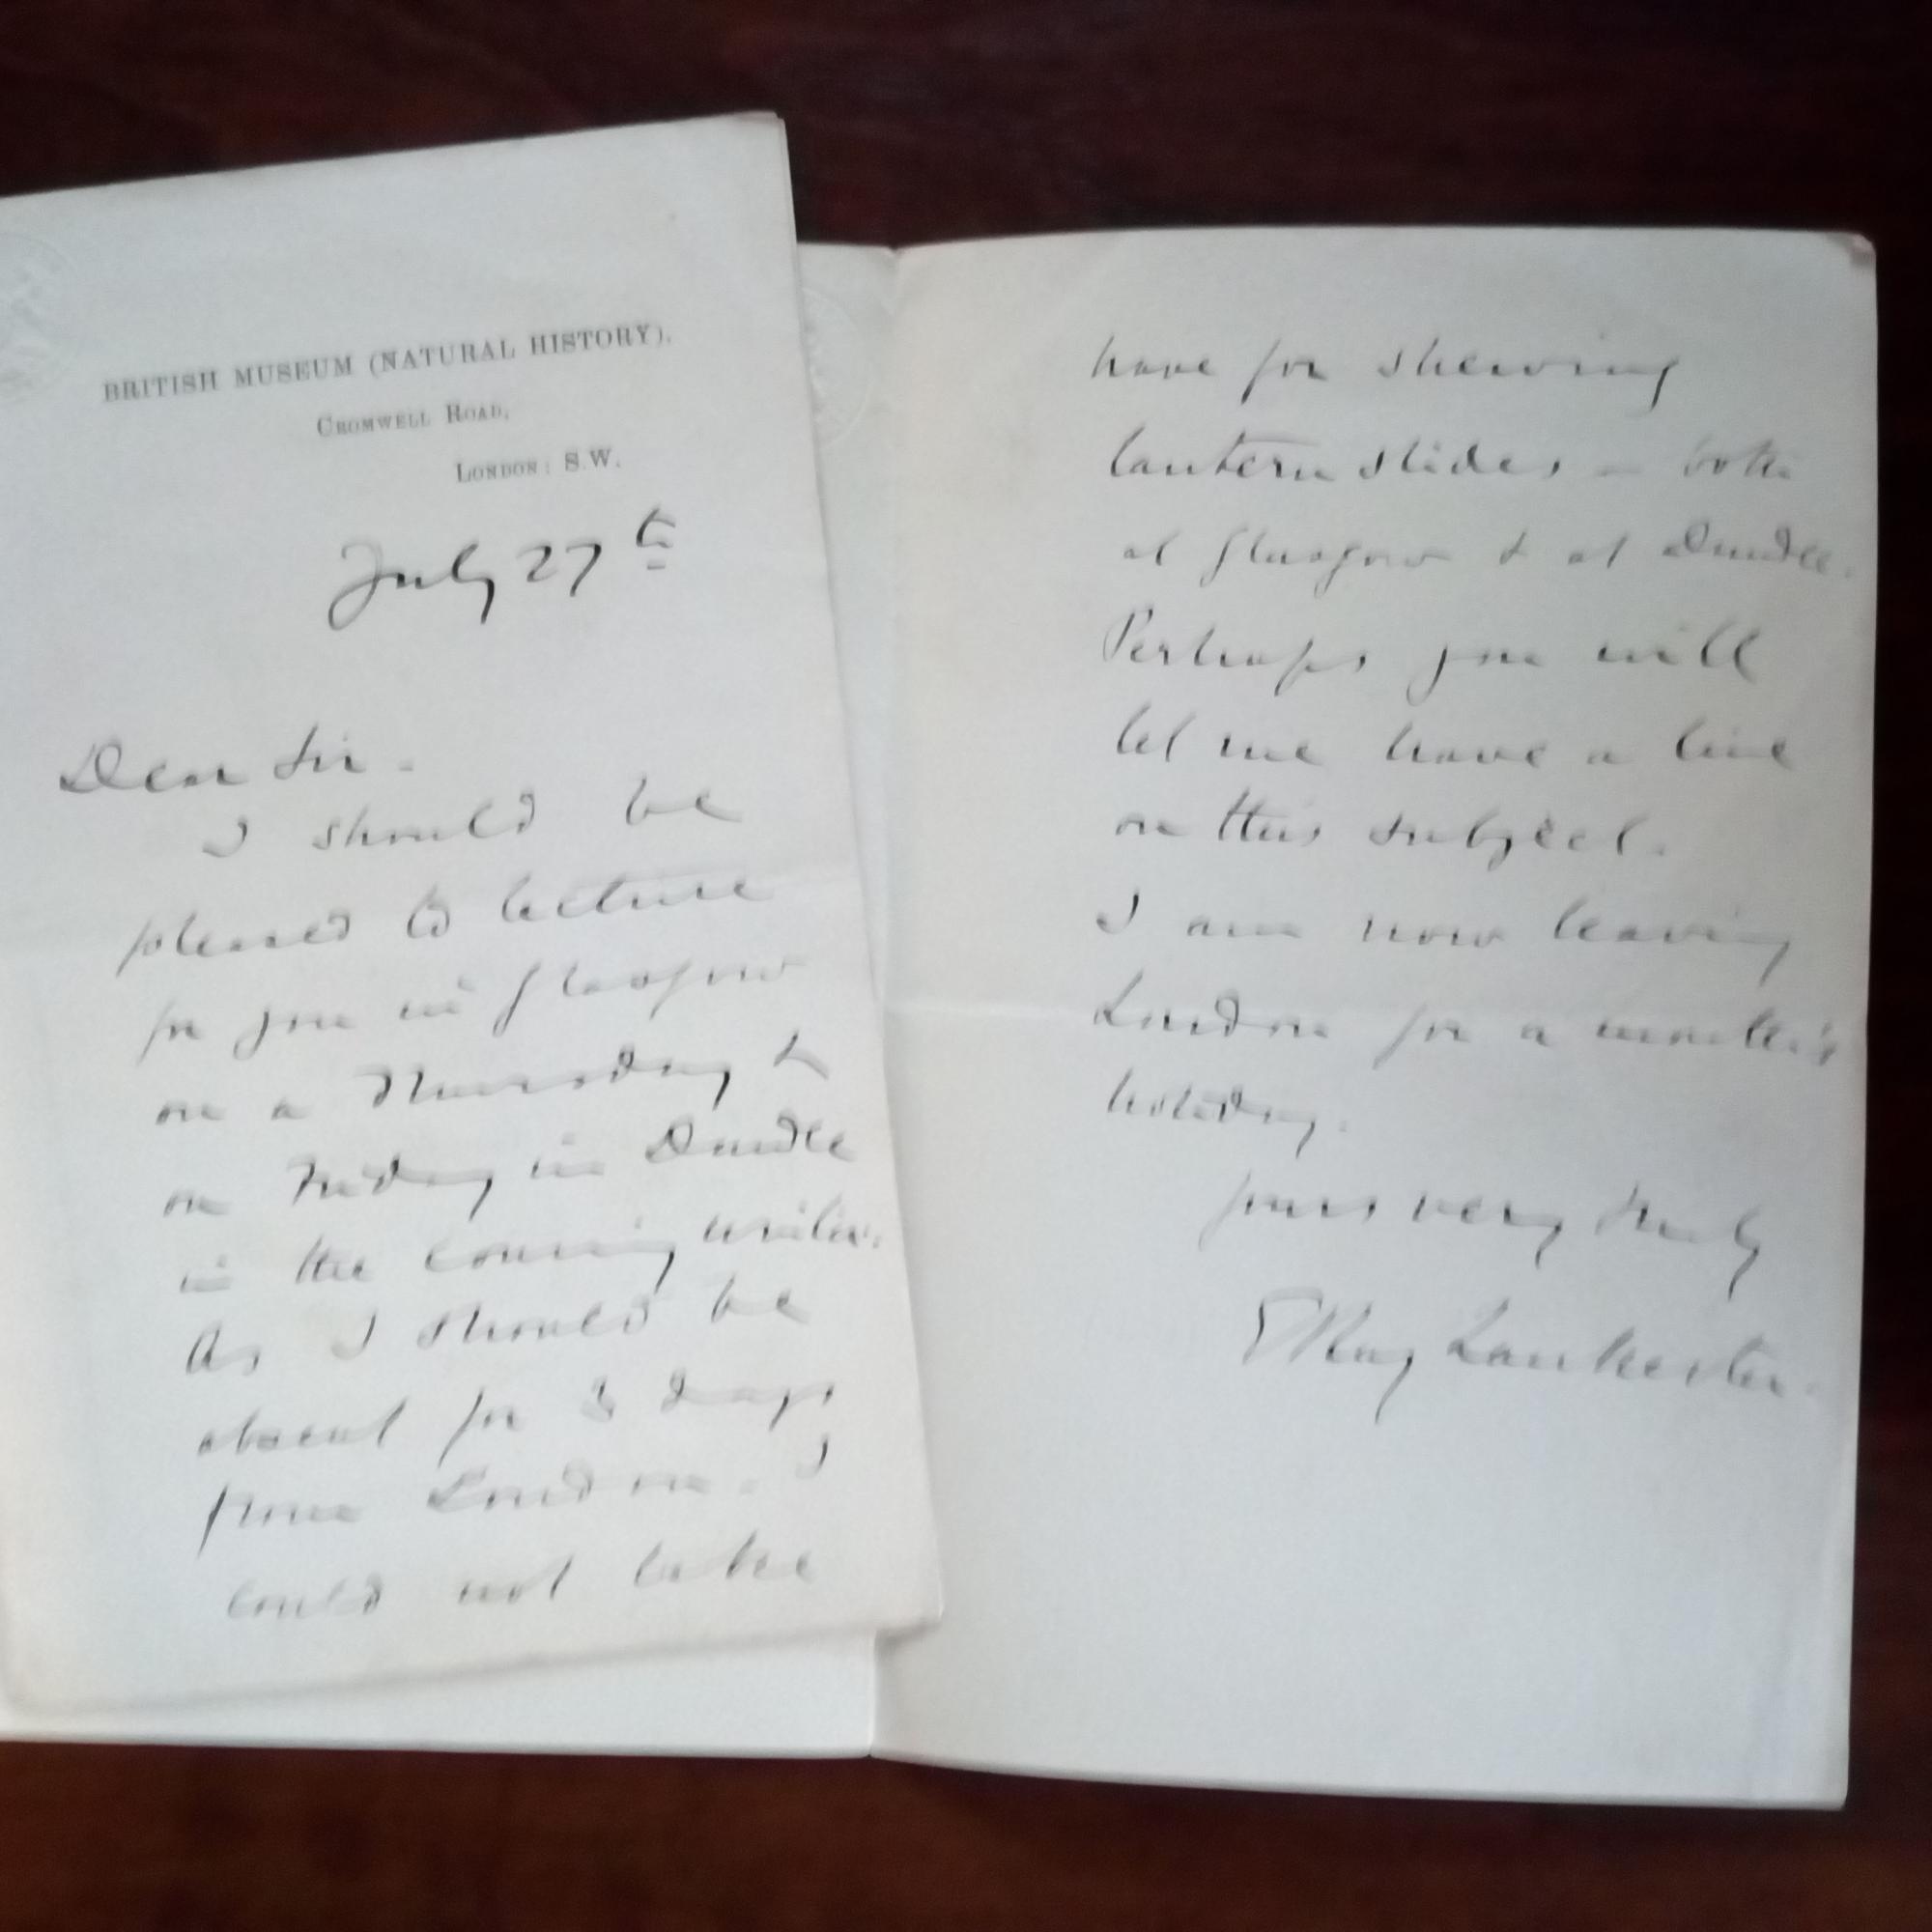 BRITISH MUSEUM (NATURAL HISTORY),
CROMWELL ROAD,
LONDON: S.W.
July 27th
Dear Sir.
I should be
pleased to lecture
for you in Glasgow
on a Thursday &
on Friday in Dundee
in the coming winter.
As I should be
absent for 3 days
from London. I
could not take
have for shewing
lantern slides - both
at Glasgow & at Dundee.
Perhaps you will
let me have a line
on this subject.
I am now leaving
London for a month's
holiday.
yours very truly
E Ray Lankester.